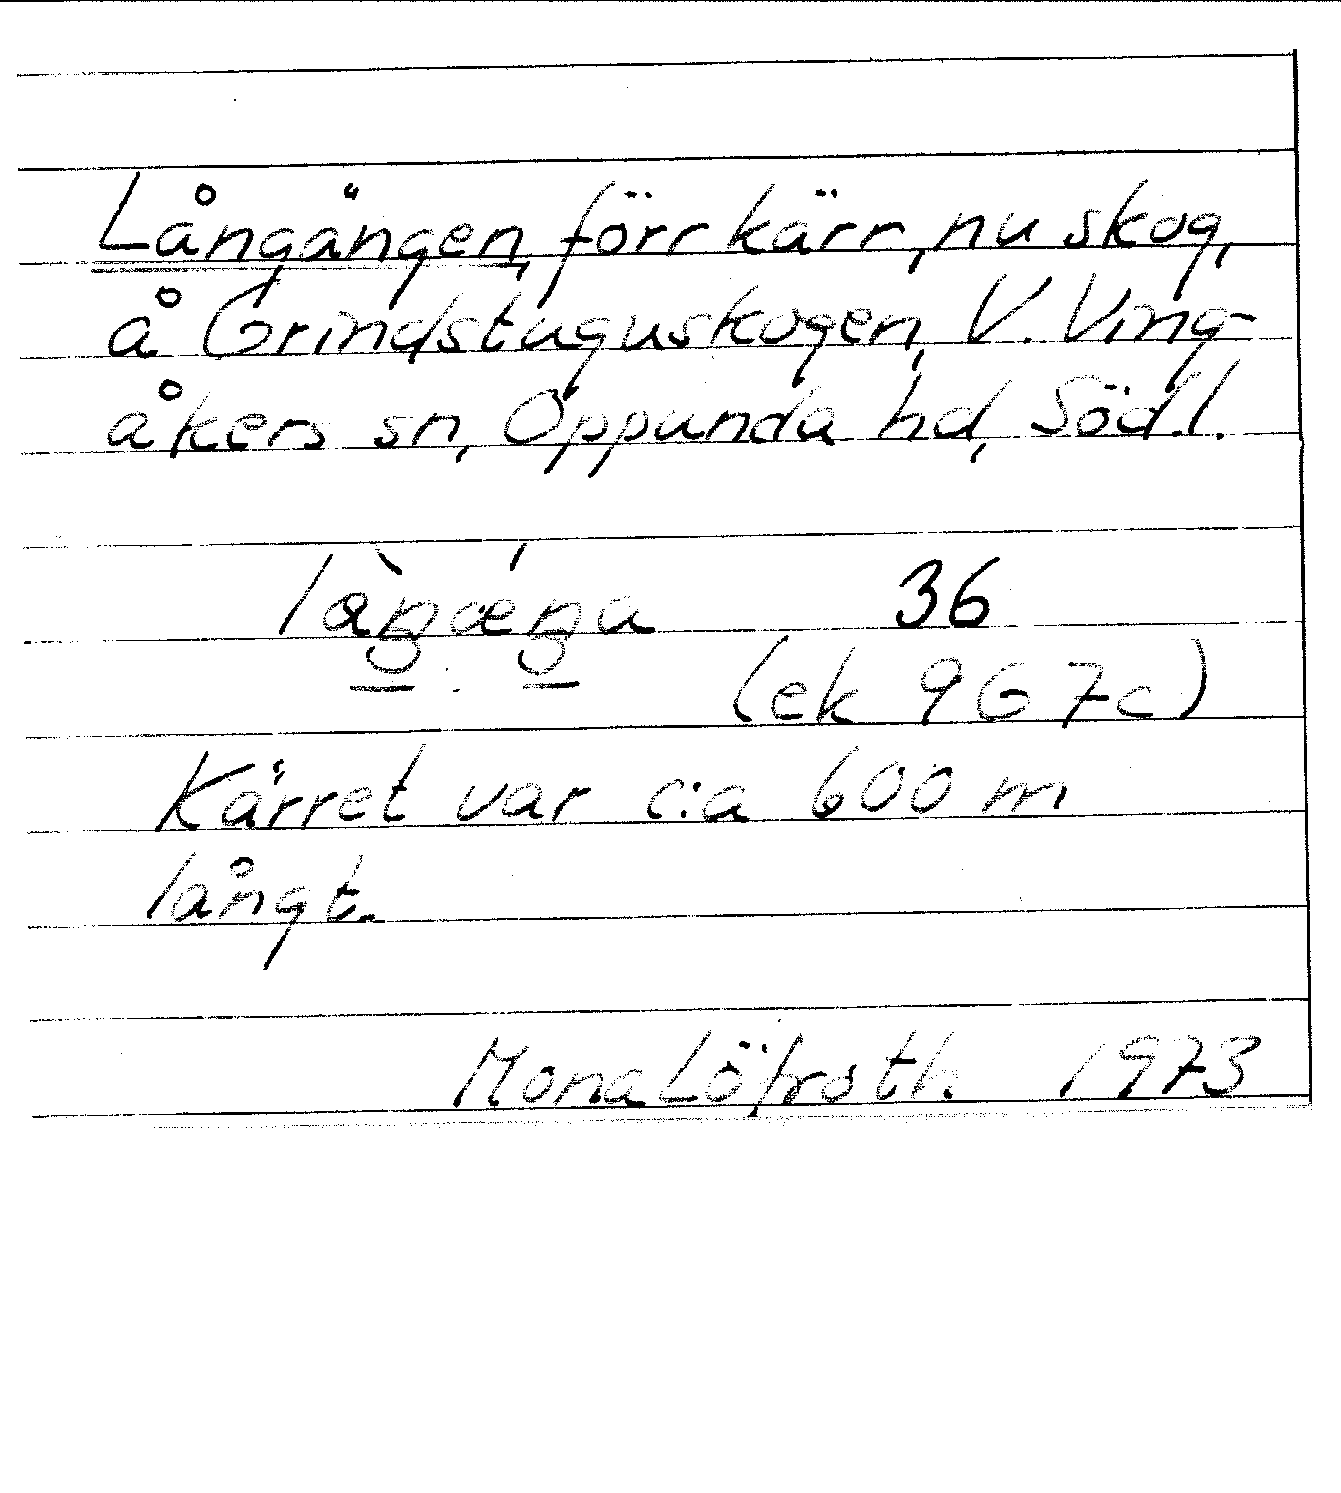 Långängen, förr kärr, nu skog,
å Grindstuguskogen, V. Ving-
åkers sn, Oppunda hd, Södl.
36
(ek 9G7c)
Kärret var c:a 600 m
långt.
Mona Löfroth 1973